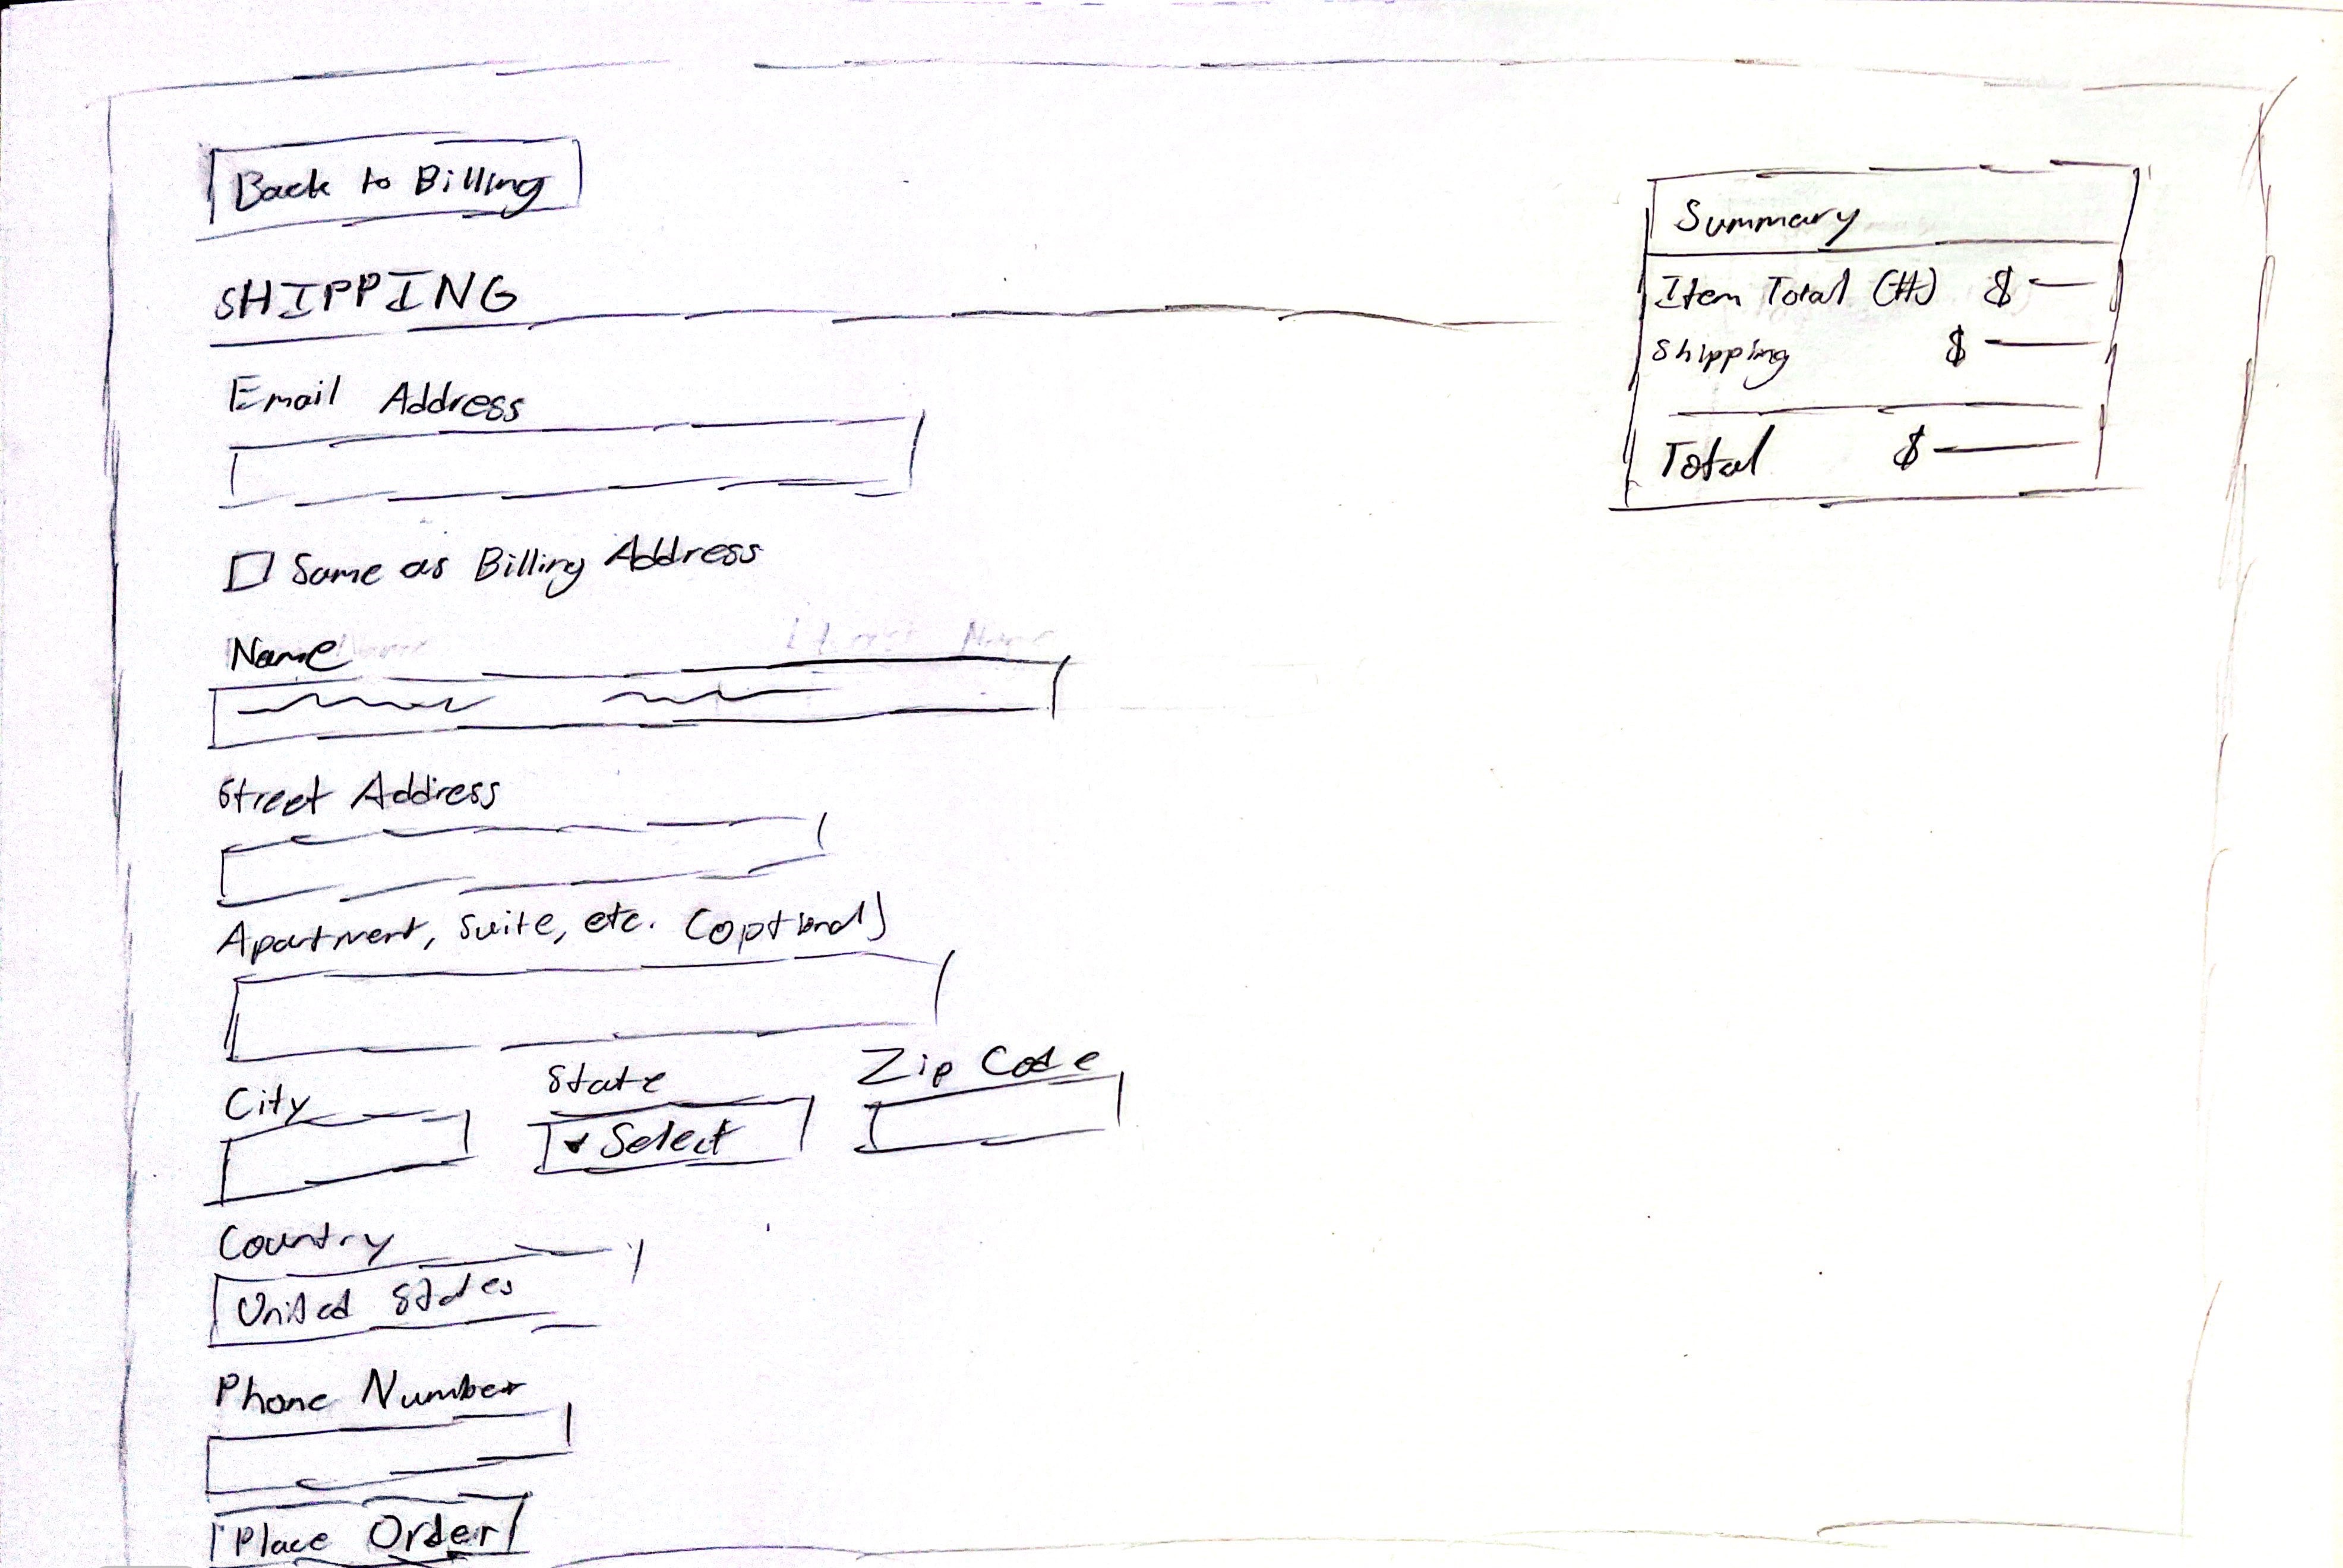 Back to Billing
SHIPPING
Email Address
Same as Billing Address
Name
Street Address
Apartment, Suite, etc. (optional)
City State Zip Code
Select
Country
United States
Phone Number
Place Order
Summary
Item Total (#) $
Shipping $
Total $